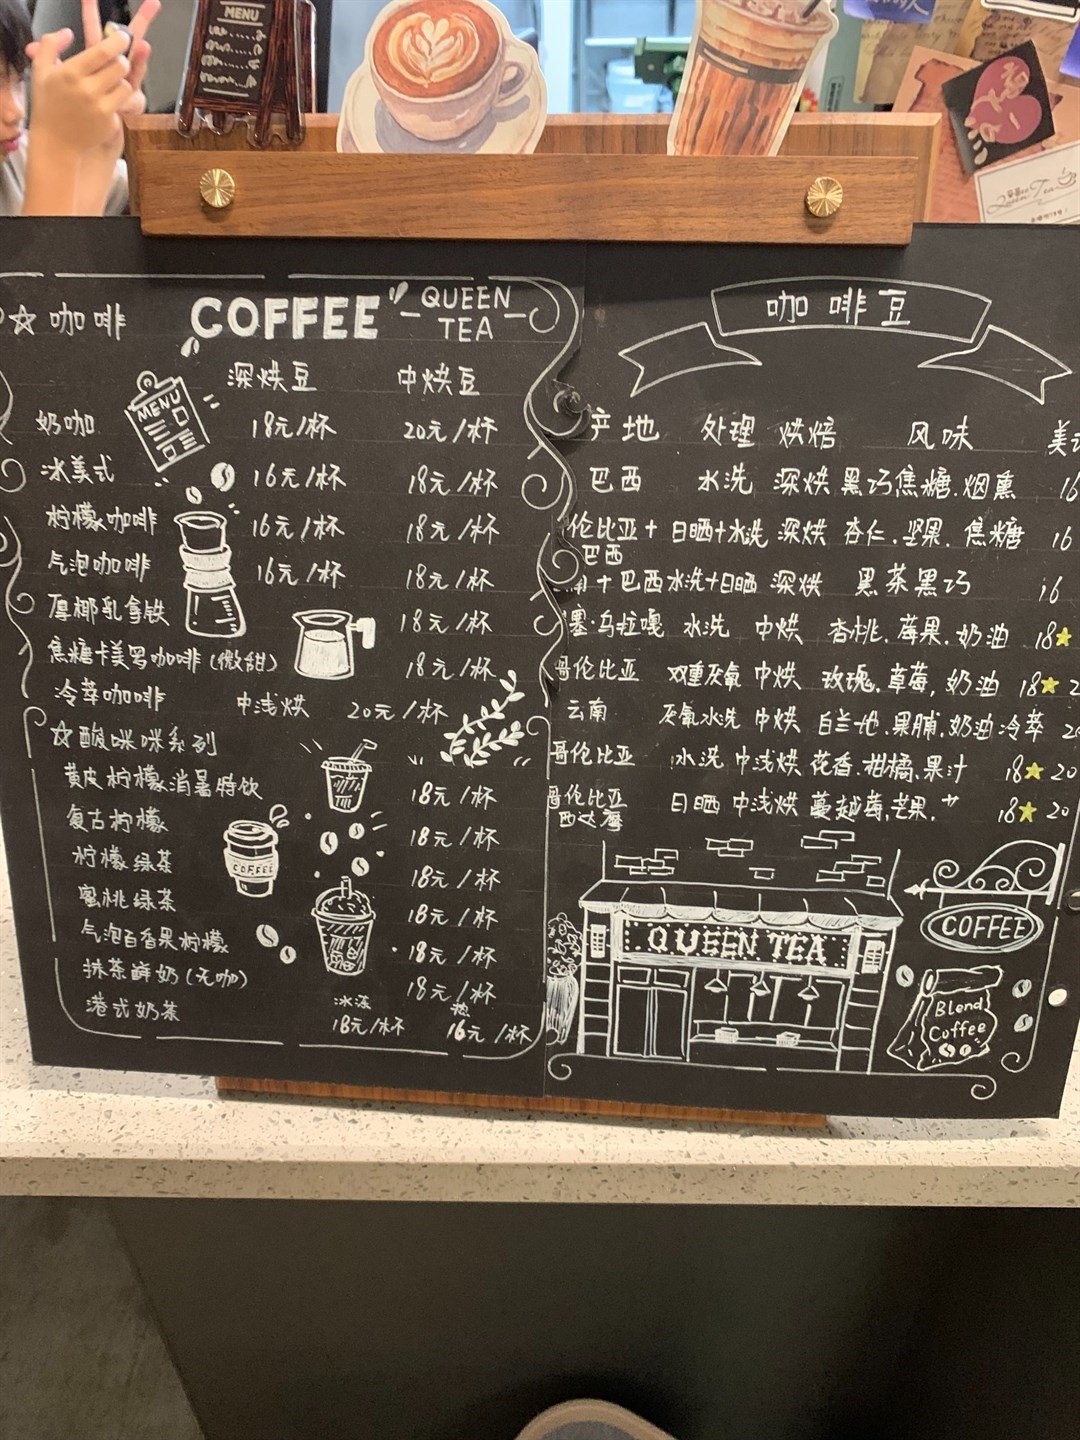 MENU
☆咖啡 COFFEE - QUEEN TEA -
深烘豆 中烘豆
MENU
奶咖 18元/杯 20元/杯
冰美式 16元/杯 18元/杯
柠檬咖啡 16元/杯 18元/杯
气泡咖啡 16元/杯 18元/杯
厚椰乳拿铁 18元/杯
焦糖卡美罗咖啡(微甜) 18元/杯
冷萃咖啡 中浅烘 20元/杯
☆酸咪咪系列
黄皮柠檬消暑特饮 18元/杯
复古柠檬 18元/杯
COFFEE
柠檬绿茶 18元/杯
蜜桃绿茶 18元/杯
气泡百香果柠檬 18元/杯
抹茶鲜奶(无咖) 18元/杯
港式奶茶 冰冻 18元/杯 热 16元/杯
咖啡豆
产地 处理 烘焙 风味 美
巴西 水洗 深烘 黑巧焦糖.烟熏 16
伦比亚+巴西 日晒+水洗 深烘 杏仁.坚果.焦糖 16
南+巴西 水洗+日晒 深烘 黑茶黑巧 16
塞·乌拉嘎 水洗 中烘 杏桃.莓果.奶油 18★
哥伦比亚 双重厌氧 中烘 玫瑰.草莓,奶油 18★2
云南 厌氧水洗 中烘 白兰地.果脯.奶油 冷萃 20
哥伦比亚 水洗 中浅烘 花香.柑橘.果汁 18★20
哥伦比亚 日晒 中浅烘 蔓越莓,芒果. 18★20
QUEEN TEA
COFFEE
Blend
Coffee